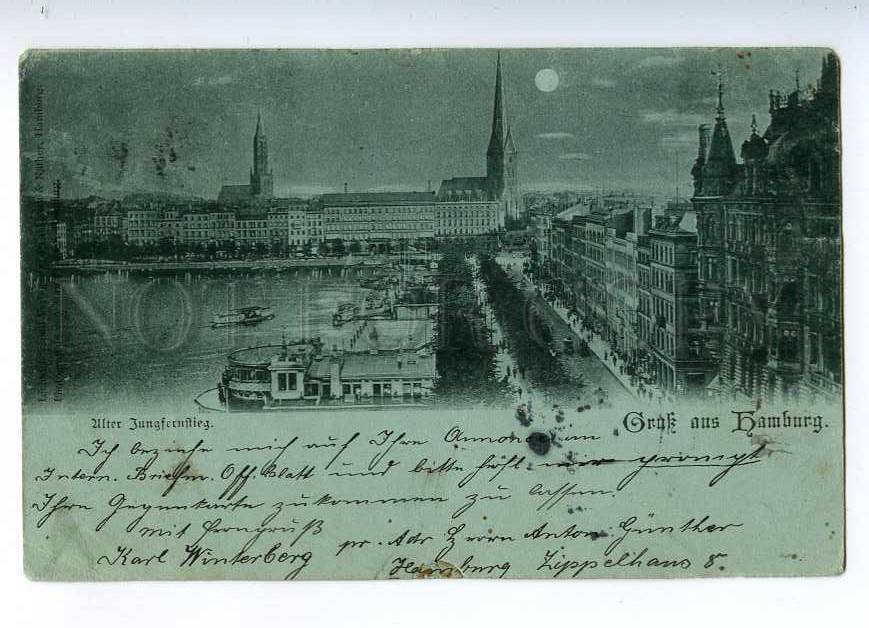 Alter Jungfernstieg.
Gruß aus Hamburg.
Ich beziehe mich auf Ihre Annonce im
Intern. Briefm. Off. Blatt und bitte höfl. mir prompt
Ihre Gegenkarte zukommen zu lassen.
Mit Ferngruß
Karl Winterberg pr. Adr Herrn Anton Günther
Hamburg Zippelhaus 8.